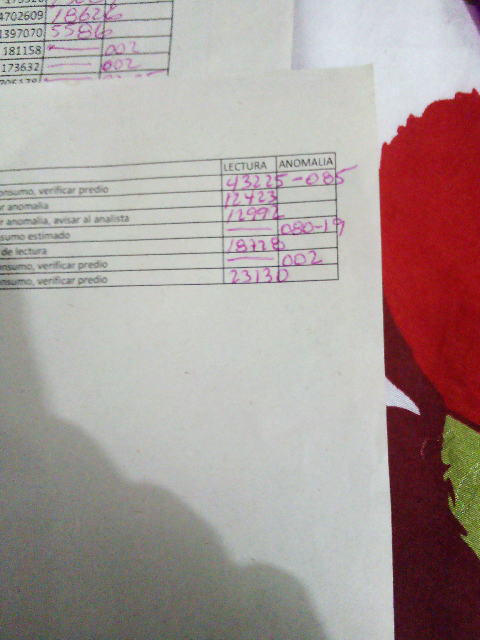 4702609 18626
1397070 5586
181158 — 002
173632 — 002
LECTURA ANOMALIA
onsumo, verificar predio 43225 -085
ar anomalia 12423
ar anomalia, avisar al analista 12992
sumo estimado — 080-19
de lectura 18728
onsumo, verificar predio — 002
onsumo, verificar predio 23130